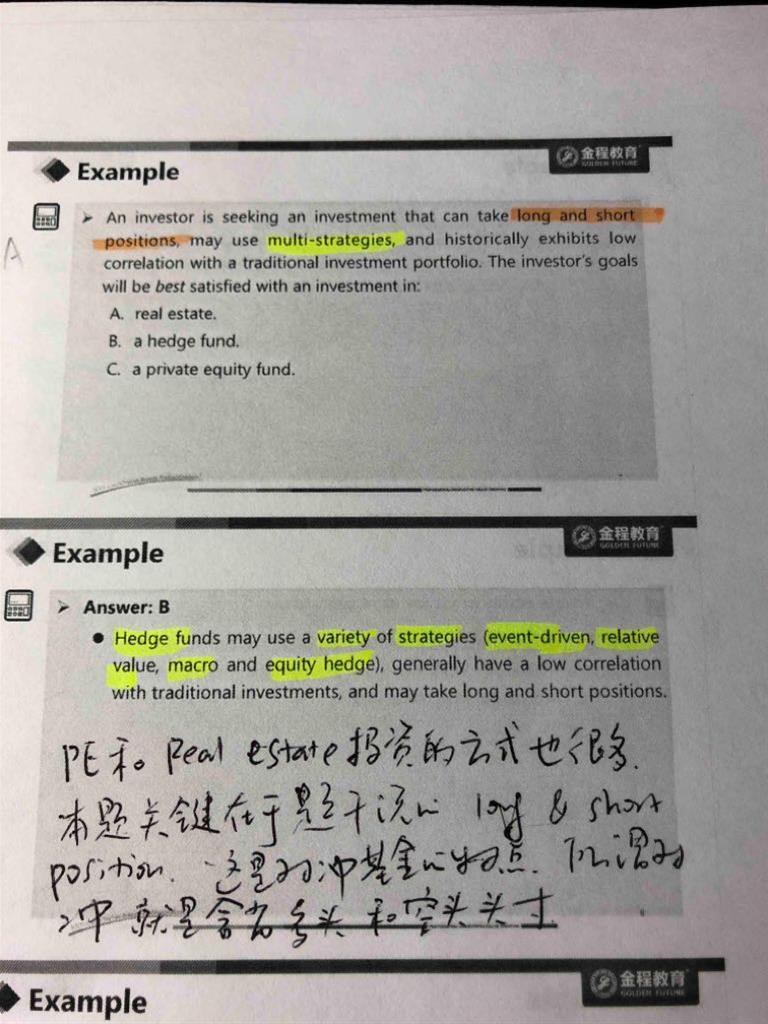 金程教育
GOLDEN FUTURE
Example
➢ An investor is seeking an investment that can take long and short
positions, may use multi-strategies, and historically exhibits low
A
correlation with a traditional investment portfolio. The investor's goals
will be best satisfied with an investment in:
A. real estate.
B. a hedge fund.
C. a private equity fund.
金程教育
GOLDEN FUTURE
Example
➢ Answer: B
● Hedge funds may use a variety of strategies (event-driven, relative
value, macro and equity hedge), generally have a low correlation
with traditional investments, and may take long and short positions.
PE和 Real estate 投资的方式也很多.
本题关键在于题干说的 long & short
position. 这是对冲基金的特点. 所谓对
冲就是含有多头和空头头寸
金程教育
GOLDEN FUTURE
Example